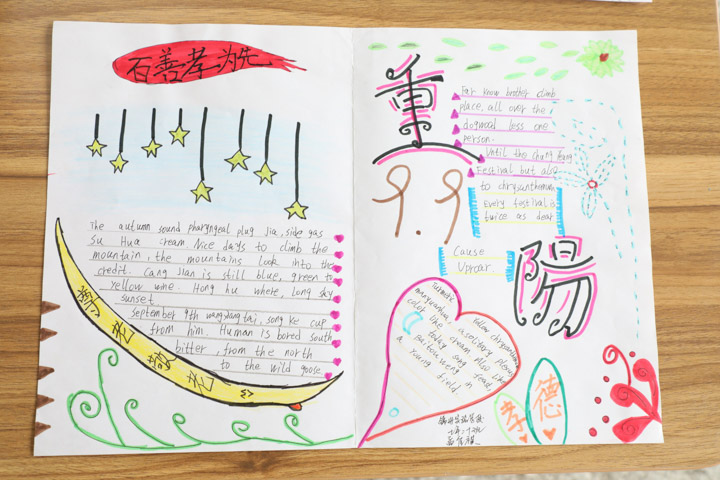 百善孝为先
The autumn sound pharyngeal plug Jia, side gas
Su Hua cream. Nice days to climb the
mountain, the mountains look into the
credit. Cang Jian is still blue, green to
yellow wine. Hong hu where, long sky
sunset.
september 9th wangxiang tai, song ke cup
from him. Human is bored south
bitter, from the north
to the wild goose.
尊老敬老
重
陽
9.9
Far know brother climb
place, all over the
dogwood less one
person.
Until the chong Yang
Festival but also
to chrysanthemum
Every festival is
twice as dear
Cause
Uproar.
yellow chrysanthemum
a solitary plover
color like cream. Also like
today song
Baitouweng in feast
a young field.
孝
德